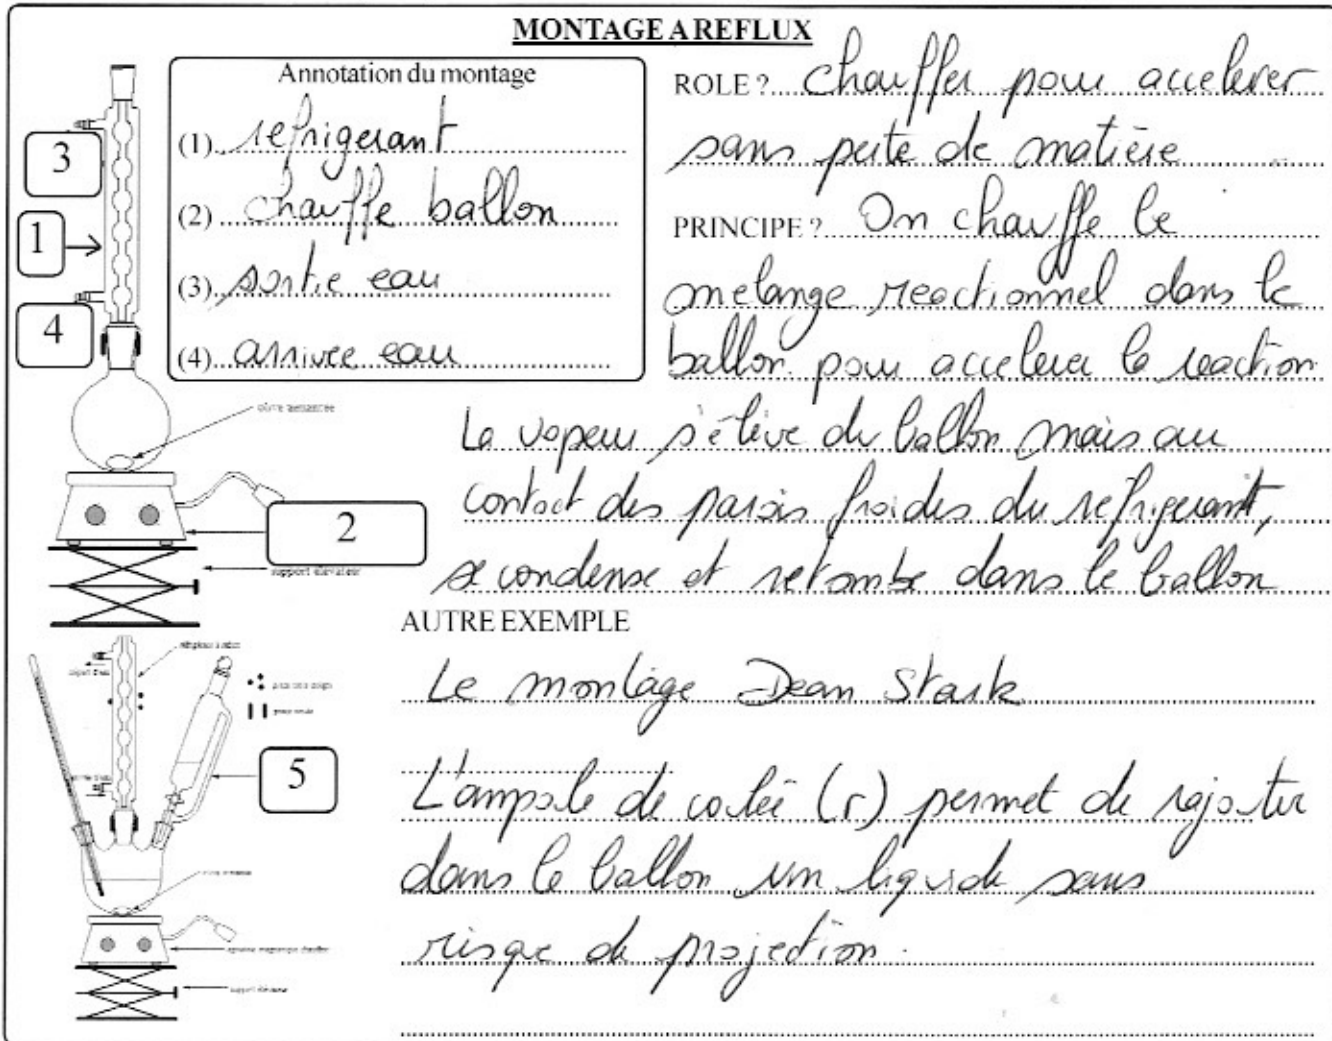 MONTAGE A REFLUX
Annotation du montage
(1) refrigerant
(2) chauffe ballon
(3) sortie eau
(4) arrivee eau
3
1
4
2
ROLE ? chauffer pour accelerer
sans perte de matière
PRINCIPE ? On chauffe le
melange reactionnel dans le
ballon pour accelerer la reaction
La vapeur s'élève du ballon mais au
contact des parois froides du réfrigerant,
se condense et retombe dans le ballon
support élévateur
AUTRE EXEMPLE
Le montage Dean Stark
5
L'ampoule de coulée (r) permet de rajouter
dans le ballon un liquide sans
risque de projection.